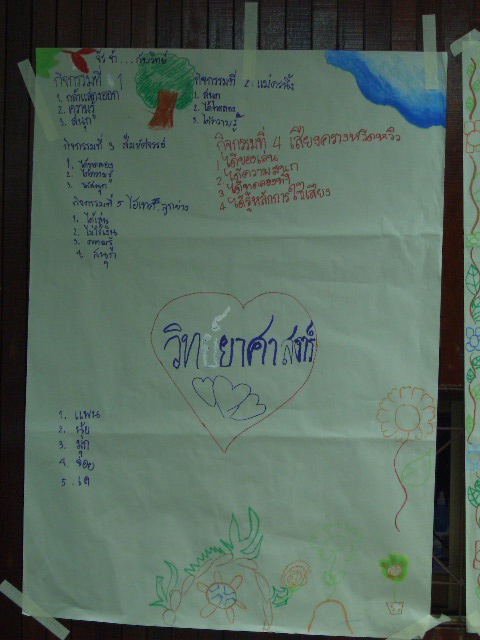 จัร จำ... กับวิทย์
กิจกรรมที่ 1
1. กล้าแสดงออก
2. ความรู้
3. สนุก
กิจกรรมที่ 2
1. สนุก
2. ได้ทดลอง
3. ได้ความรู้
กิจกรรมที่ 3
1. ได้ทดลอง
2. ได้ความรู้
3. สนุก
กิจกรรมที่ 4 เสียงครางหวีดหวิว
1 ได้ของเล่น
2 ได้ความสนุก
3 ได้ทดลองทำ
4 ได้รู้หลักการใช้เสียง
กิจกรรมที่ 5 ไฮเทค ลูกข่าง
1. ได้เล่น
2.
3. ความรู้
4. สนุก ๆ
วิทย์ยาศาสตร์
1. แพน
2. นุ้ย
3. มุก
4. จ๋อย
5. เต